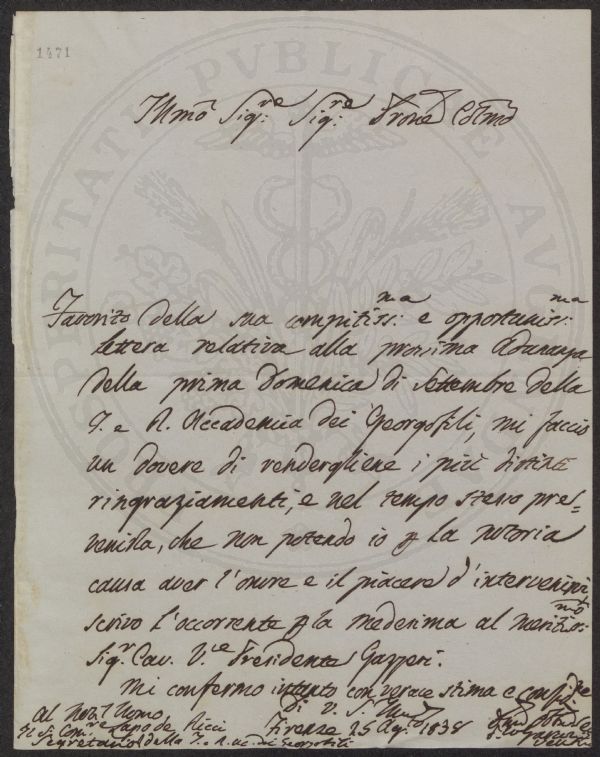 1471
PROSPERITATI PUBLICAE AUGENDAE
Illmo Sigre: Sigre: Prone Colmo
Favorito della sua compitiss:ma e opportuniss:ma
lettera relativa alla prossima Adunanza
della prima Domenica di Settembre della
I. e R. Accademia dei Georgofili, mi faccio
un dovere di rendergliene i più distinti
ringraziamenti, e nel tempo stesso pre=
venirla, che non potendo io p la notoria
causa aver l'onore e il piacere d'intervenirvi
scrivo l'occorrente p la medesima al meritiss:mo
Sigr. Cav. V.ce Presidente Gazzeri.
Mi confermo intanto con verace stima e
Di V. S. Illma
Al Nobil Uomo
Il Sig. Comre Lapo de Ricci
Segretario della I. e R. Ac. dei Georgofili
Firenze 25 Ago. 1838